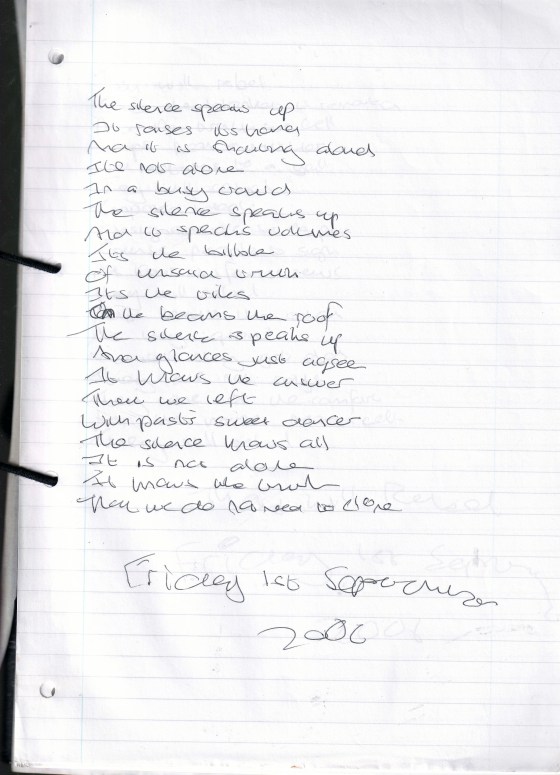 The silence speaks up
It raises its hand
And it is shouting aloud
Its not alone
In a busy crowd
The silence speaks up
And it speaks volumes
Its the
Of unsaid truth
Its the tiles
On the beams the roof
The silence speaks up
And glances just agree
It knows the answer
That we left
With pasts sweet dancer
The silence knows all
It is not alone
It knows the truth
That we do not need to
Friday 1st September
2006